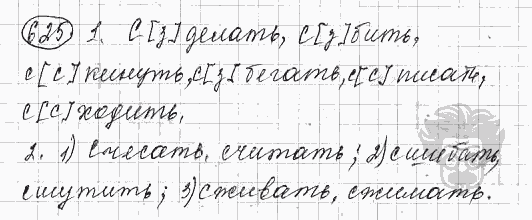 625 1. С[з]делать, с[з]бить,
с[с]кинуть, с[з]бегать, с[с]писать,
с[с]ходить.
2. 1) Счесать, считать; 2) сшибить,
сшутить; 3) сживать, сжимать.